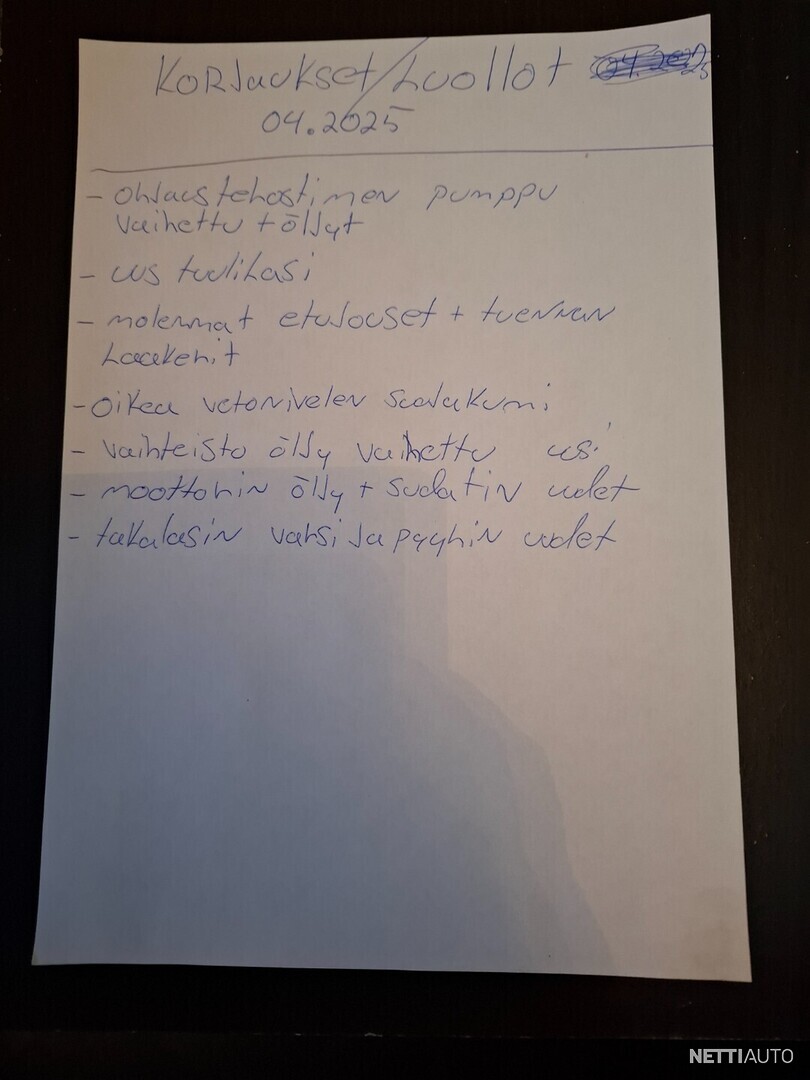 Korjaukset/Huollot
04.2025
- ohjaustehostimen pumppu
vaihettu + öljyt
- uus tuulilasi
- molemmat etujouset + tuennan
laakerit
- oikea vetonivelen suojakumi
- vaihteisto öljy vaihettu usi
- moottorin öljy + suodatin uudet
- takalasin varsi ja pyyhin uudet
NETTIAUTO